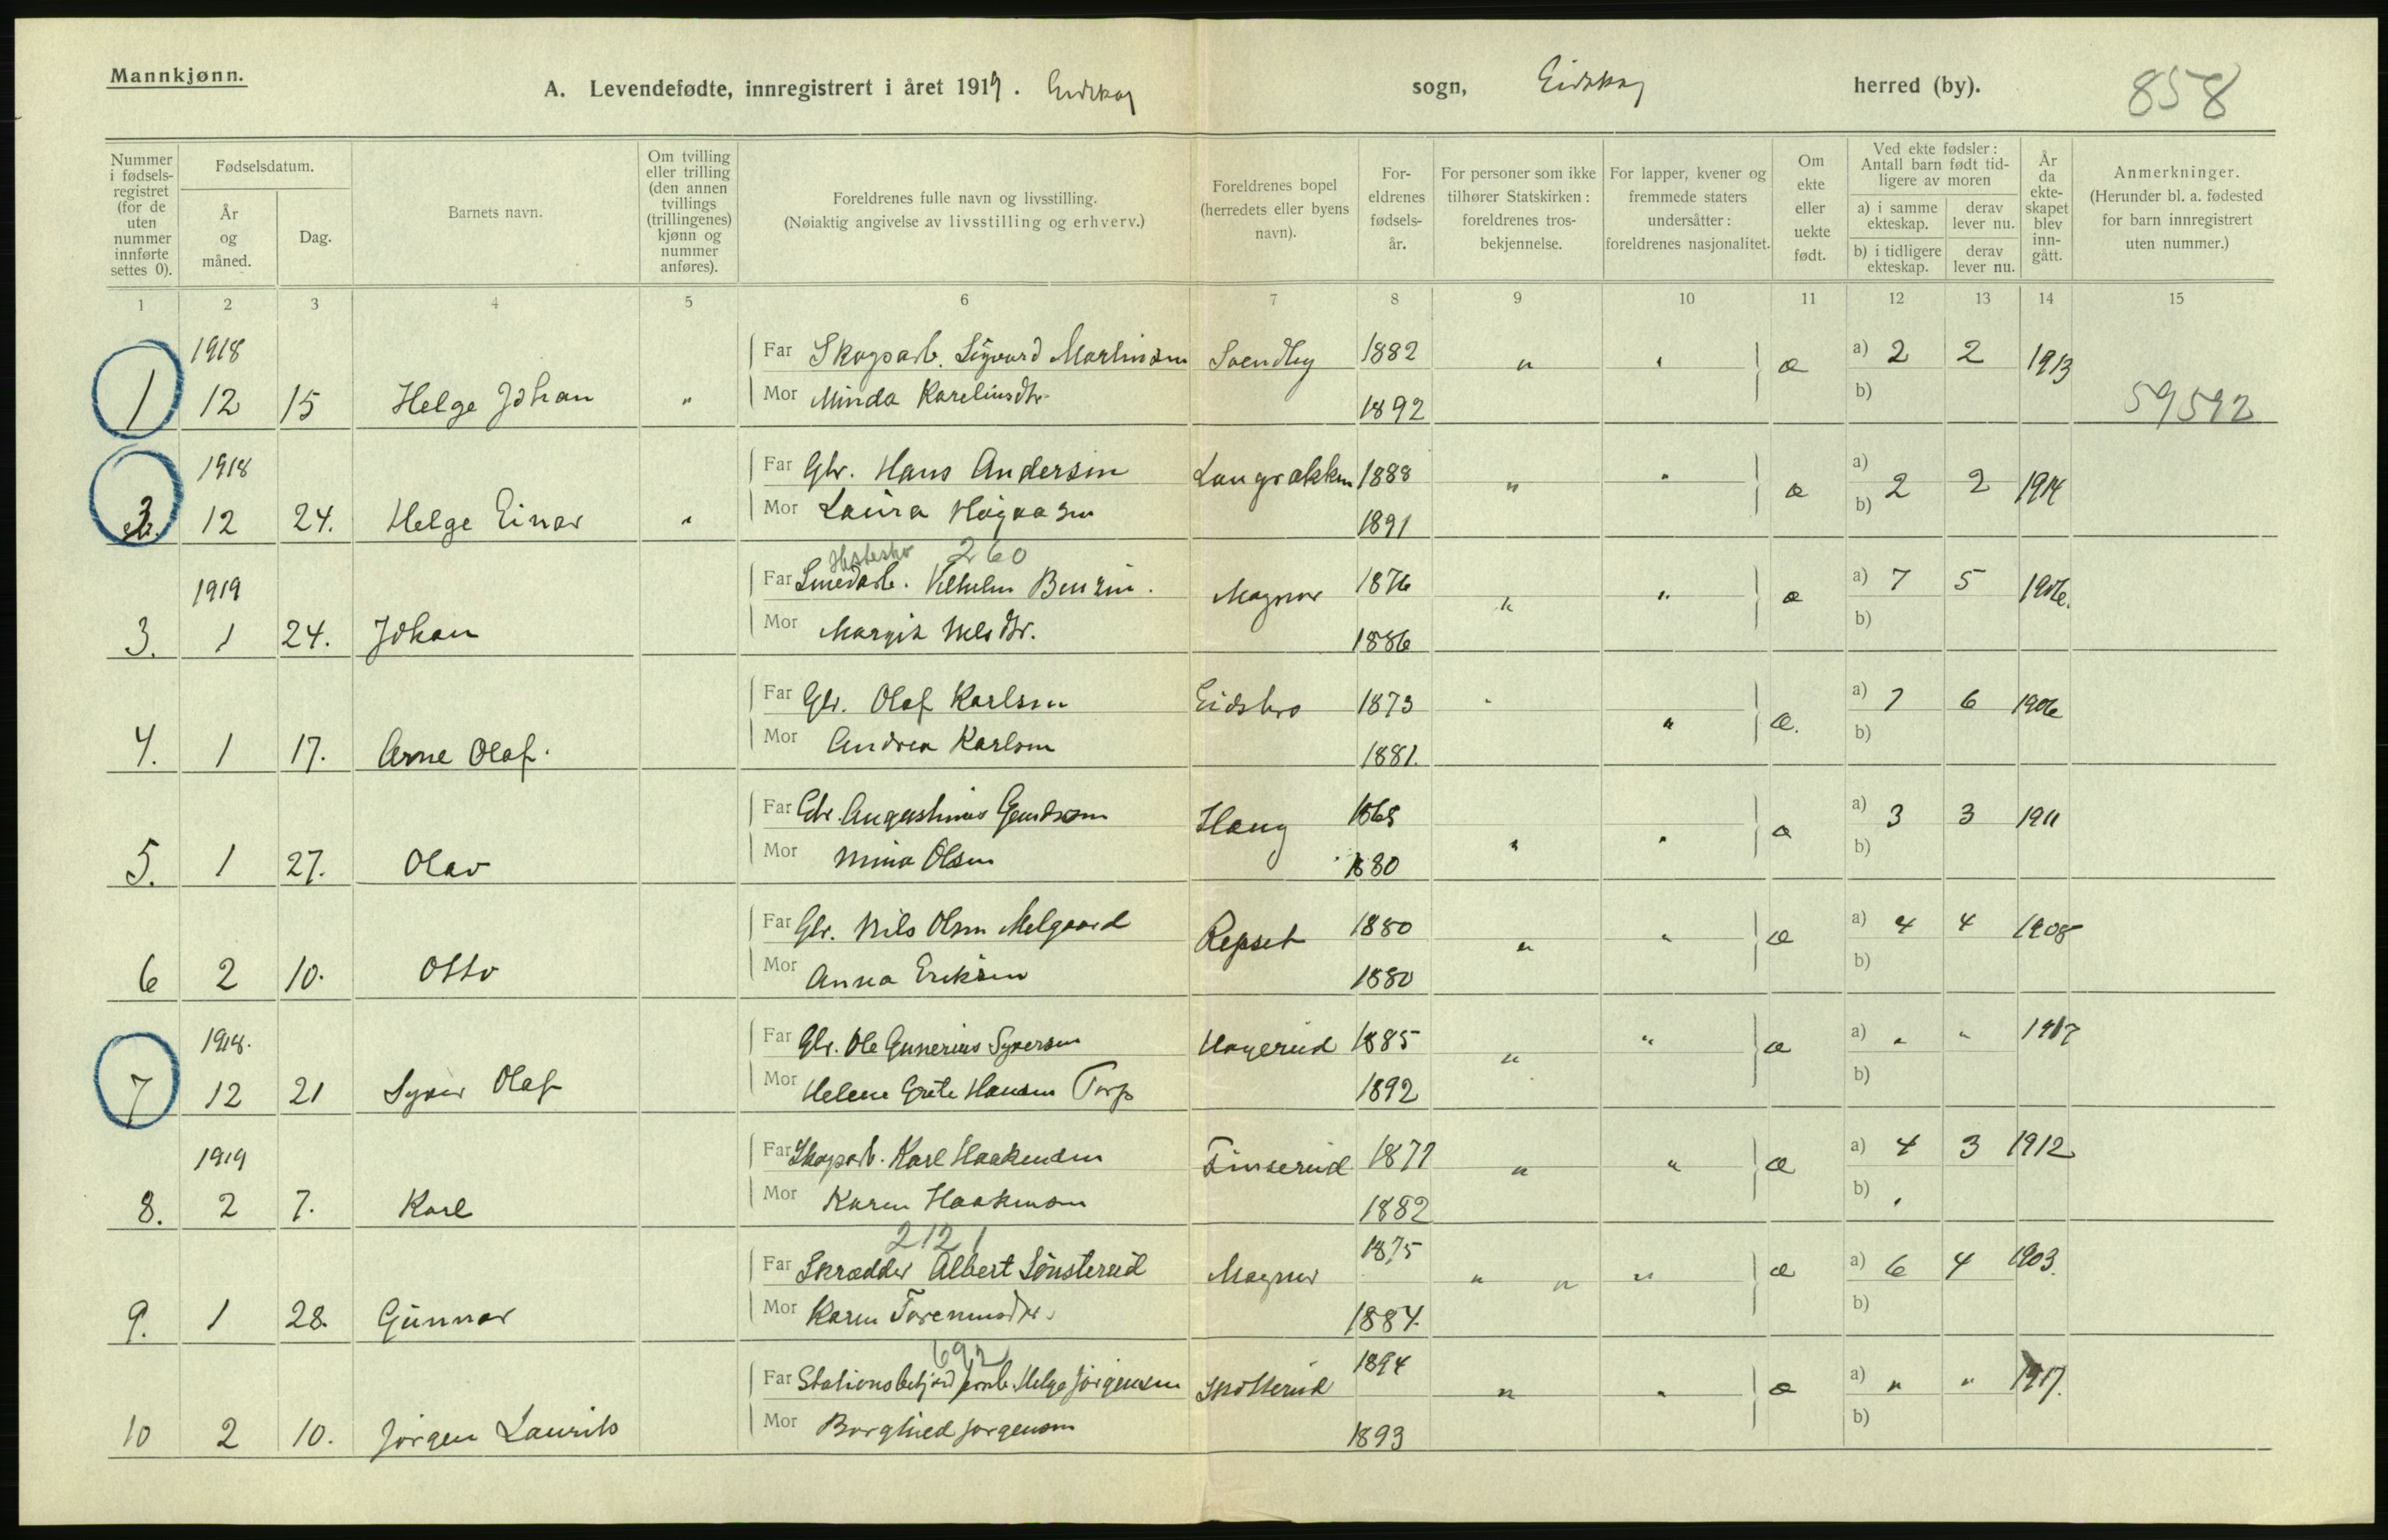 Mannkjønn.
A. Levendefødte, innregistrert i året 1919. Eidskog sogn, Eidskog herred (by).
858
Nummer i fødselsregistret (for de uten nummer innførte settes 0).
Fødselsdatum.
År og måned.
Dag.
Barnets navn.
Om tvilling eller trilling (den annen tvillings (trillingenes) kjønn og nummer anføres).
Foreldrenes fulle navn og livsstilling.
(Nøiaktig angivelse av livsstilling og erhverv.)
Foreldrenes bopel (herredets eller byens navn).
Foreldrenes fødselsår.
For personer som ikke tilhører Statskirken: foreldrenes trosbekjennelse.
For lapper, kvener og fremmede staters undersåtter: foreldrenes nasjonalitet.
Om ekte eller uekte født.
Ved ekte fødsler: Antall barn født tidligere av moren
a) i samme ekteskap.
derav lever nu.
b) i tidligere ekteskap.
derav lever nu.
År da ekteskapet blev inngått.
Anmerkninger.
(Herunder bl. a. fødested for barn innregistrert uten nummer.)
1 2 3 4 5 6 7 8 9 10 11 12 13 14 15
1918
Far Skogsarb. Sigvard Martinsen 1882 " " æ a) 2 2 1913
1 12 15 Helge Johan " Mor Minda Kareliusdtr. 1892 b) 59592
1918
Far Gbr. Hans Andersen Langrækken 1888 " " æ a)
2. 12 24. Helge Einar " Mor Laura Hagaasen 1891 b) 2 2 1914
260
1919
Far Smedarb. Vilhelm Bensen. Magnor 1876 " " æ a) 7 5 1906.
3. 1 24. Johan Mor Margit Nilsdtr. 1886 b)
Far Gbr. Olaf Karlsen Eidsbro 1873 " " æ. a) 7 6 1906
4. 1 17. Arne Olaf. Mor Andrea Karlsen 1881. b)
Far Gbr. Augustinus Haug 1868 " " æ a) 3 3 1911
5. 1 27. Olav Mor Mina Olsen 1880 b)
Far Gbr. Nils Olsen Melgaard Repset 1880 " " æ a) 4 4 1908
6 2 10. Otto Mor Anna Eriksen 1880 b)
1918.
Far Gbr. Ole Gunerius Syversen Hagerud 1885 " " æ a) " " 1917
7 12 21 Syver Olaf Mor Helene Grete Hansen Torp 1892 b)
1919
Far Skogsarb. Karl Haakensen Finserud 1877 " " æ a) 4 3 1912
8. 2 7. Karl Mor Karen Haakensen 1882 b) "
2121
Far Skrædder Albert Sønsterud Magnor 1875 " " " æ a) 6 4 1903.
9. 1 28. Gunnar Mor Karen 1884. b)
692
Far Stationsbetj. Helge Jørgensen Skotterud 1894 " " æ a) " " 1917.
10 2 10. Jørgen Laurits Mor Borghild Jørgensen 1893 b)